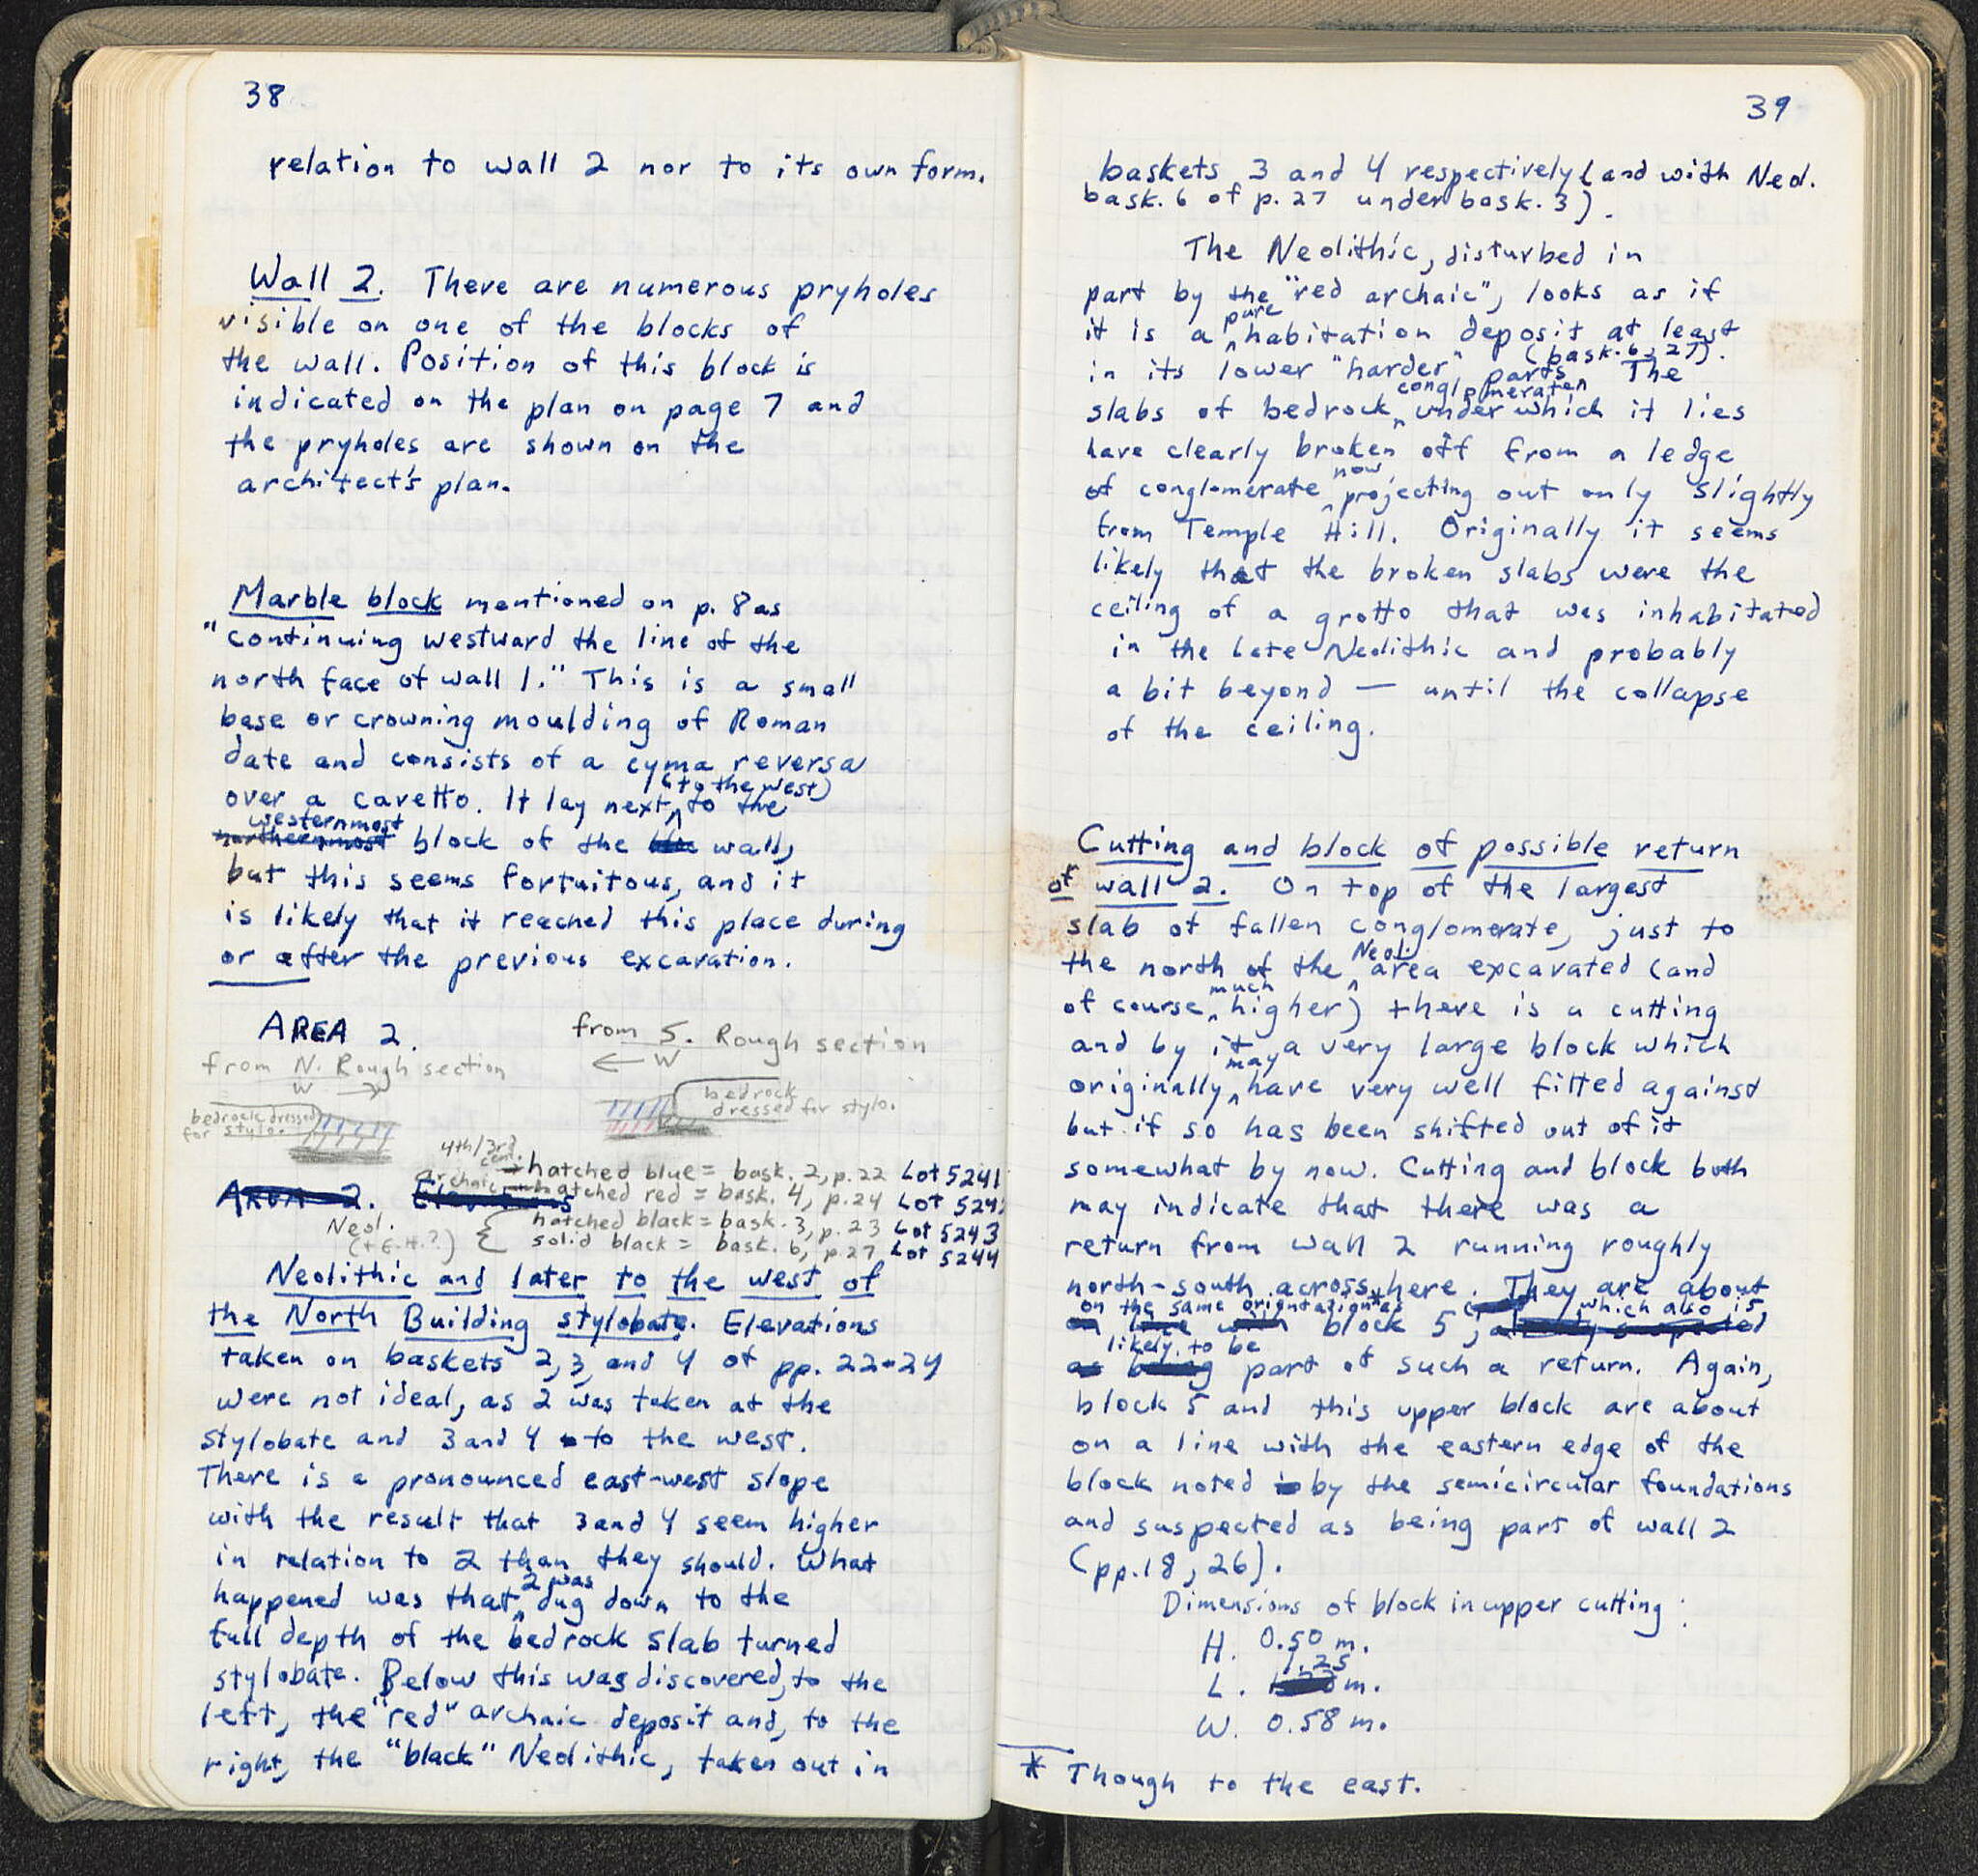 38
relation to wall 2 nor to its own form.
Wall 2. There are numerous pryholes
visible on one of the blocks of
the wall. Position of this block is
indicated on the plan on page 7 and
the pryholes are shown on the
architect's plan.
Marble block mentioned on p. 8 as
"continuing westward the line of the
north face of wall 1." This is a small
base or crowning moulding of Roman
date and consists of a cyma reversa
(to the west)
over a cavetto. It lay next ^ to the
westernmost
northernmost block of the wall,
but this seems fortuitous, and it
is likely that it reached this place during
or after the previous excavation.
AREA 2.
from N. Rough section
W →
bedrock dressed
for stylo.
from S. Rough section
← W
bedrock
dressed for stylo.
4th/3rd
cent. hatched blue = bask. 2, p. 22 Lot 5241
Archaic hatched red = bask. 4, p. 24 Lot 5242
Area 2. Elevations
Neol.
(+ E.H.?)
hatched black = bask. 3, p. 23 Lot 5243
solid black = bask. 6, p. 27 Lot 5244
Neolithic and later to the west of
the North Building stylobate. Elevations
taken on baskets 2, 3, and 4 of pp. 22-24
were not ideal, as 2 was taken at the
stylobate and 3 and 4 to the west.
There is a pronounced east-west slope
with the result that 3 and 4 seem higher
in relation to 2 than they should. What
2 was
happened was that ^ dug down to the
full depth of the bedrock slab turned
stylobate. Below this was discovered, to the
left, the "red" archaic deposit and, to the
right, the "black" Neolithic, taken out in
39
baskets 3 and 4 respectively (and with Neol.
bask. 6 of p. 27 under bask. 3).
The Neolithic, disturbed in
part by the "red archaic", looks as if
pure
it is a ^ habitation deposit at least
(bask. 6, 27).
in its lower "harder" parts The
conglomerate
slabs of bedrock ^ under which it lies
have clearly broken off from a ledge
now
of conglomerate ^ projecting out only slightly
from Temple Hill. Originally it seems
likely that the broken slabs were the
ceiling of a grotto that was inhabitated
in the late Neolithic and probably
a bit beyond — until the collapse
of the ceiling.
Cutting and block of possible return
of wall 2. On top of the largest
slab of fallen conglomerate, just to
Neol.
the north of the ^ area excavated (and
much
of course ^ higher) there is a cutting
and by it a very large block which
may
originally ^ have very well fitted against
but if so has been shifted out of it
somewhat by now. Cutting and block both
may indicate that there was a
return from wall 2 running roughly
north-south across here. They are about
on the same orientation* as which also is
on line with block 5, already suspected
likely to be
as being part of such a return. Again,
block 5 and this upper block are about
on a line with the eastern edge of the
block noted by the semicircular foundations
and suspected as being part of wall 2
(pp. 18, 26).
Dimensions of block in upper cutting:
H. 0.50 m.
1.25
L. m.
W. 0.58 m.
* Though to the east.